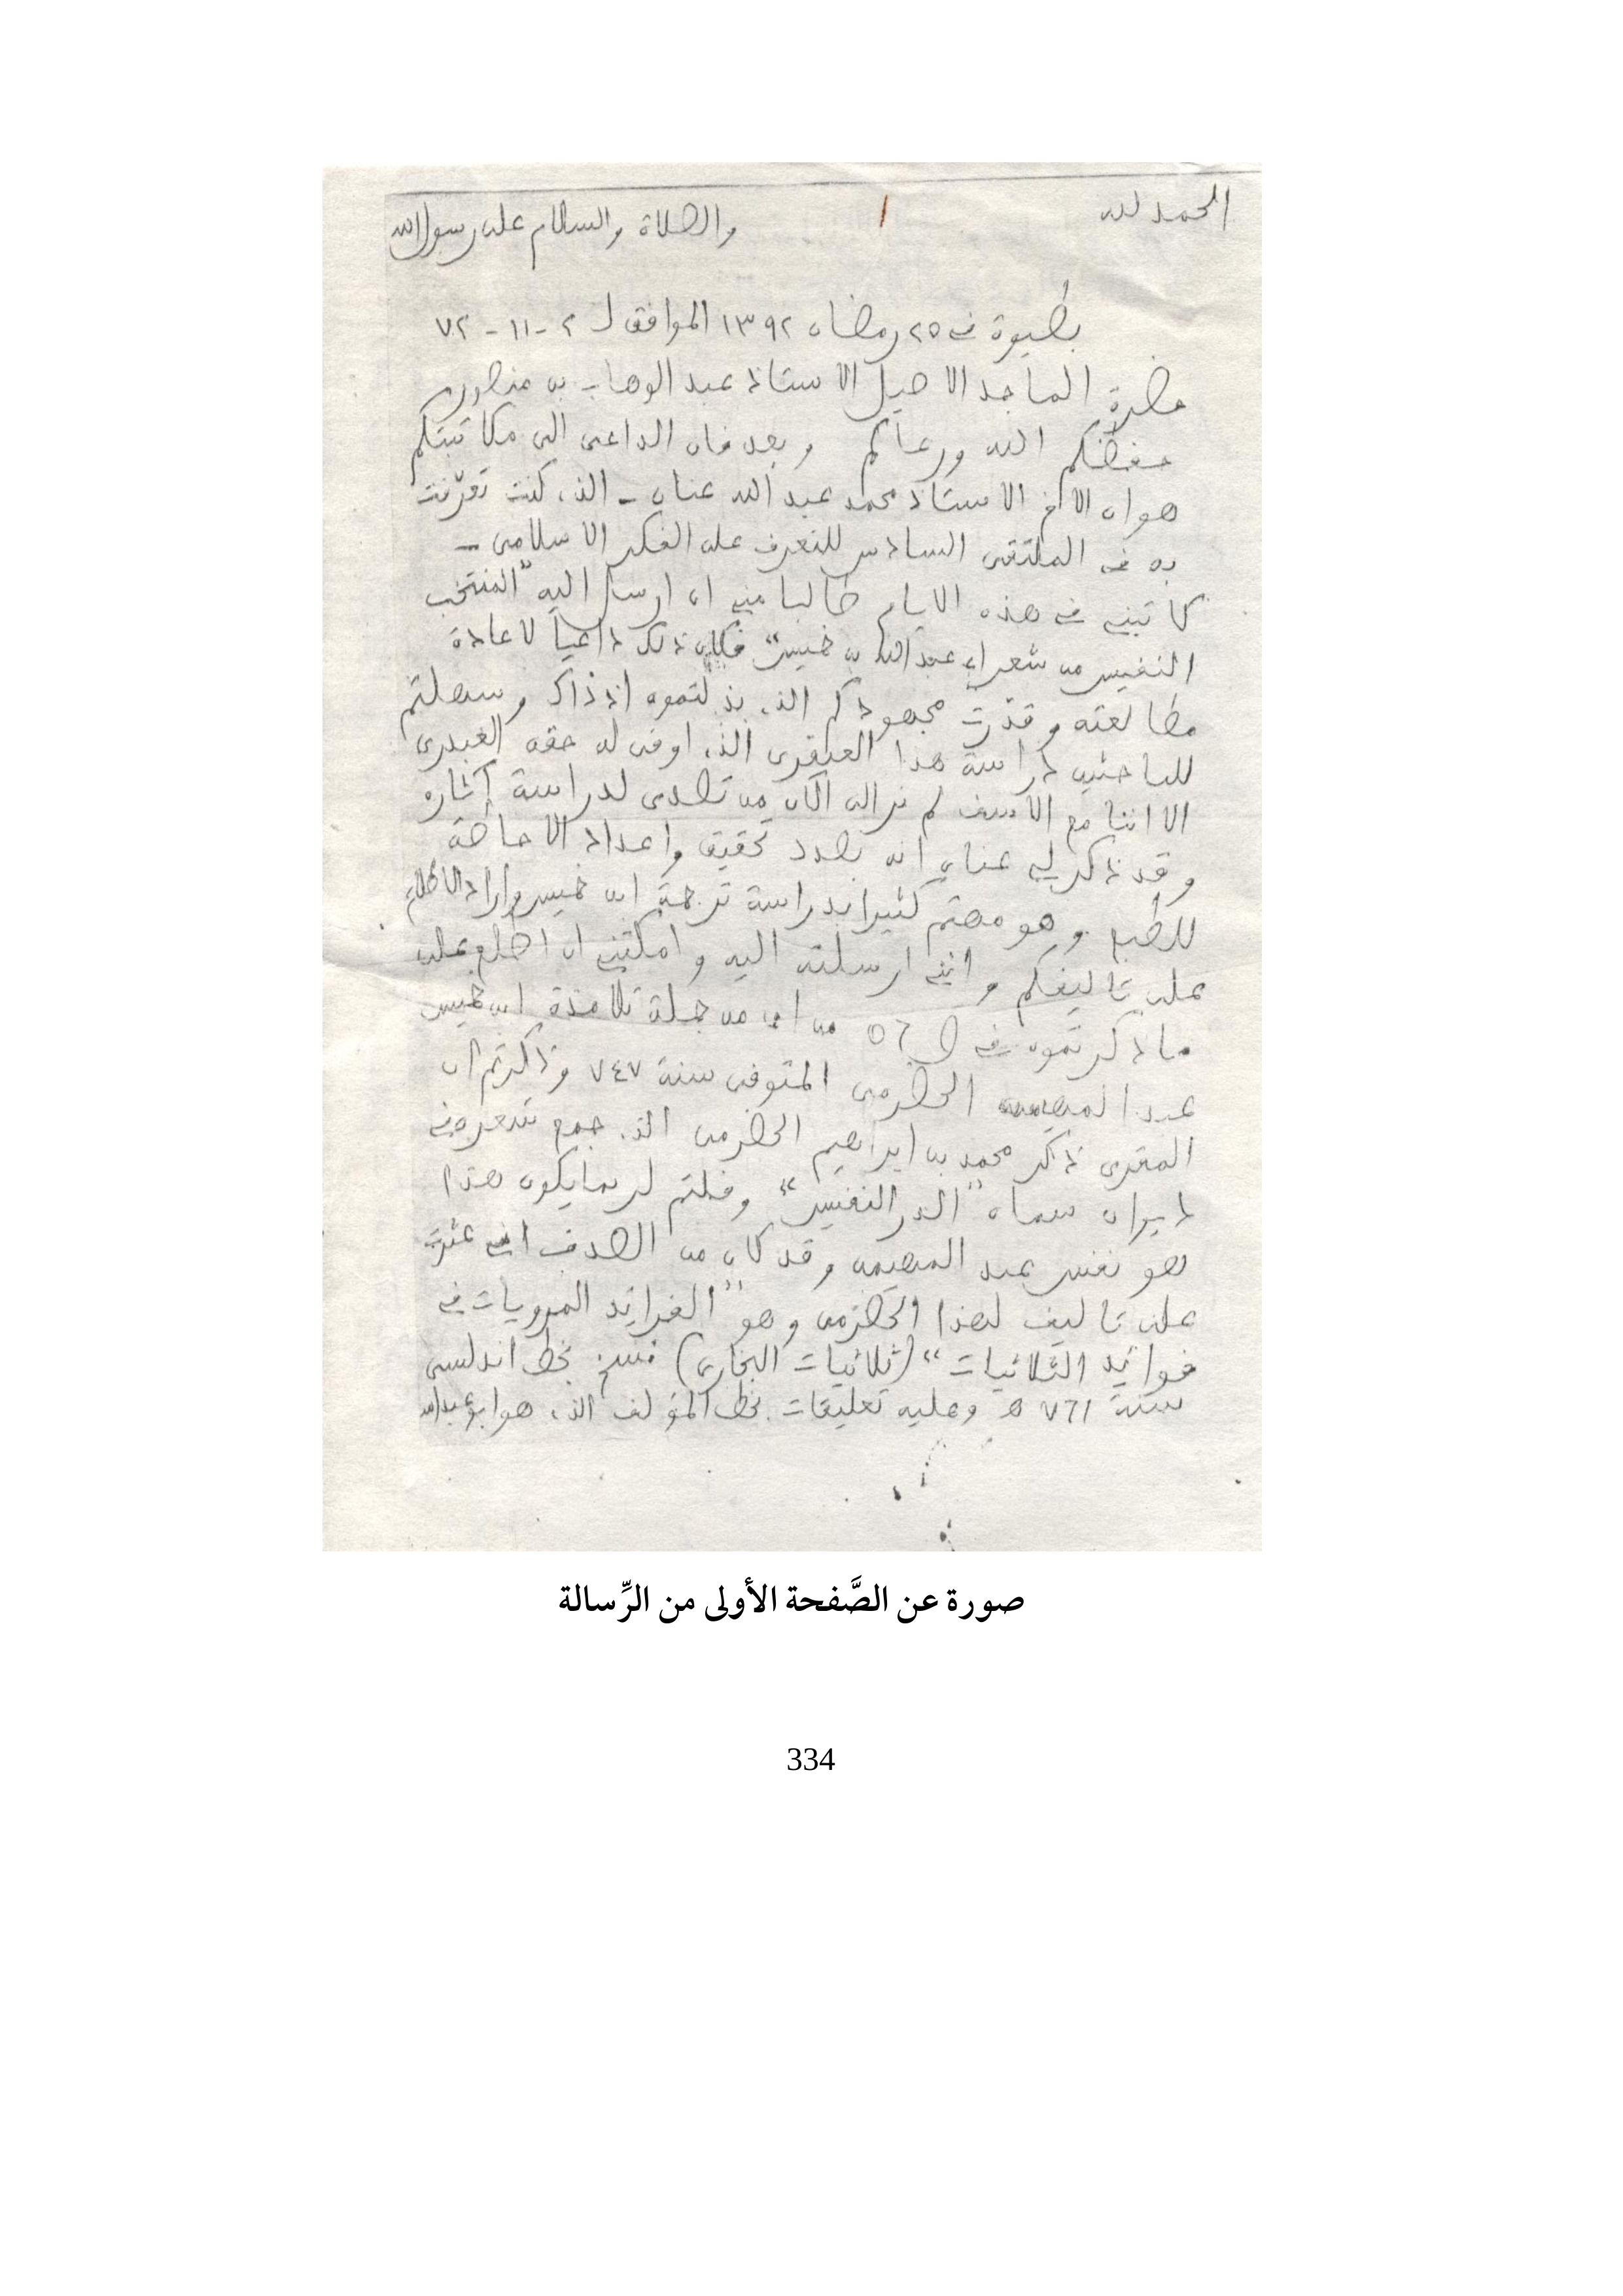 الحمد لله
والصلاة والسلام على رسول الله
بطيوة في ٢٥ رمضان ١٣٩٢ الموافق ل ٢ - ١١ - ٧٢
حضرة الماجد الاصيل الاستاذ عبد الوهاب بن منصور
حفظكم الله ورعاكم وبعد فان الداعي الى مكاتبتكم
هو ان الاخ الاستاذ محمد عبد الله عنان - الذي كنت تعرّفت
به في الملتقى السادس للتعرف على الفكر الاسلامي -
كاتبني في هذه الايام طالبا مني ان ارسل اليه "المنتخب
النفيس من شعر ابي عبد الله بن خميس" فكان ذلك داعيا لاعادة
مطالعته وقدّرت مجهودكم الذي بذلتموه اذ ذاك وسهلتم
للباحثين دراسة هذا العبقري الذي اوفى له حقه العبدري
الا اننا مع الاسف لم نر الى الآن من تصدى لدراسة آثاره
وقد ذكر لي عنان انه بصدد تحقيق واعداد الاحاطة
للطبع وهو مهتم كثيرا بدراسة ترجمة ابن خميس واراد الاطلاع
على تاليفكم وانني ارسلته اليه وامكنني ان اطلع على
ما ذكرتموه في ال ٥٦ من ان من جملة تلامذة ابن خميس
عبد المهيمن الحضرمي المتوفى سنة ٧٤٧ وذكرتم ان
المقري ذكر محمد بن ابراهيم الحضرمي الذي جمع شعره في
ديوان سماه "الدر النفيس" وقلتم لربما يكون هذا
هو نفس عبد المهيمن وقد كان من الصدف اني عثرت
على تاليف لهذا الحضرمي وهو "الفرائد المرويات في
فوائد الثلاثيات" (ثلاثيات البخاري) نسخ بخط اندلسي
سنة ٧٦١ ه وعليه تعليقات بخط المؤلف الذي هو ابو عبد الله
صورة عن الصَّفحة الأولى من الرِّسالة
334